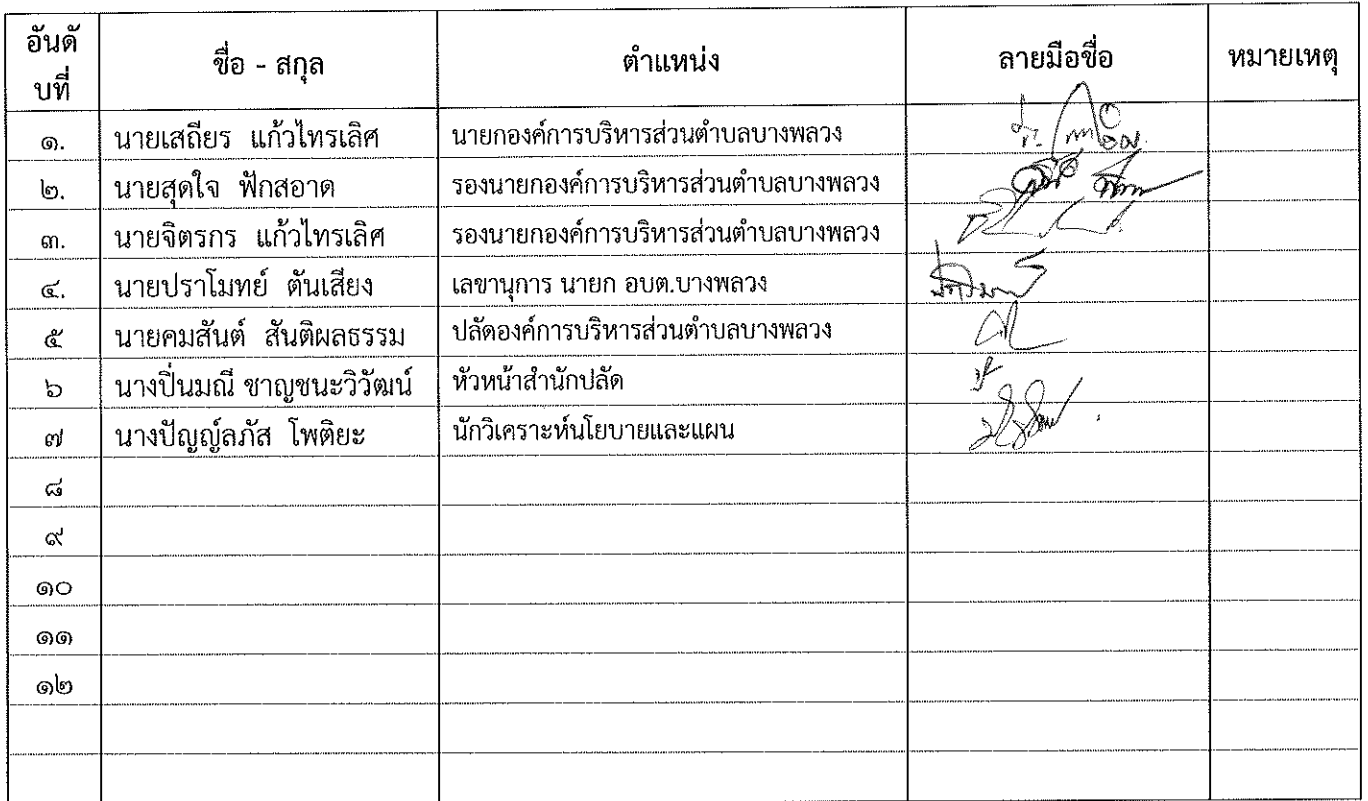 อันดั
บที่
ชื่อ - สกุล
ตำแหน่ง
ลายมือชื่อ
หมายเหตุ
๑. นายเสถียร แก้วไทรเลิศ นายกองค์การบริหารส่วนตำบลบางพลวง
๒. นายสุดใจ ฟักสอาด รองนายกองค์การบริหารส่วนตำบลบางพลวง
๓. นายจิตรกร แก้วไทรเลิศ รองนายกองค์การบริหารส่วนตำบลบางพลวง
๔. นายปราโมทย์ ตันเสียง เลขานุการ นายก อบต.บางพลวง
๕ นายคมสันต์ สันติผลธรรม ปลัดองค์การบริหารส่วนตำบลบางพลวง
๖ นางปิ่นมณี ชาญชนะวิวัฒน์ หัวหน้าสำนักปลัด
๗ นางปัญญ์ลภัส โพติยะ นักวิเคราะห์นโยบายและแผน
๘
๙
๑๐
๑๑
๑๒